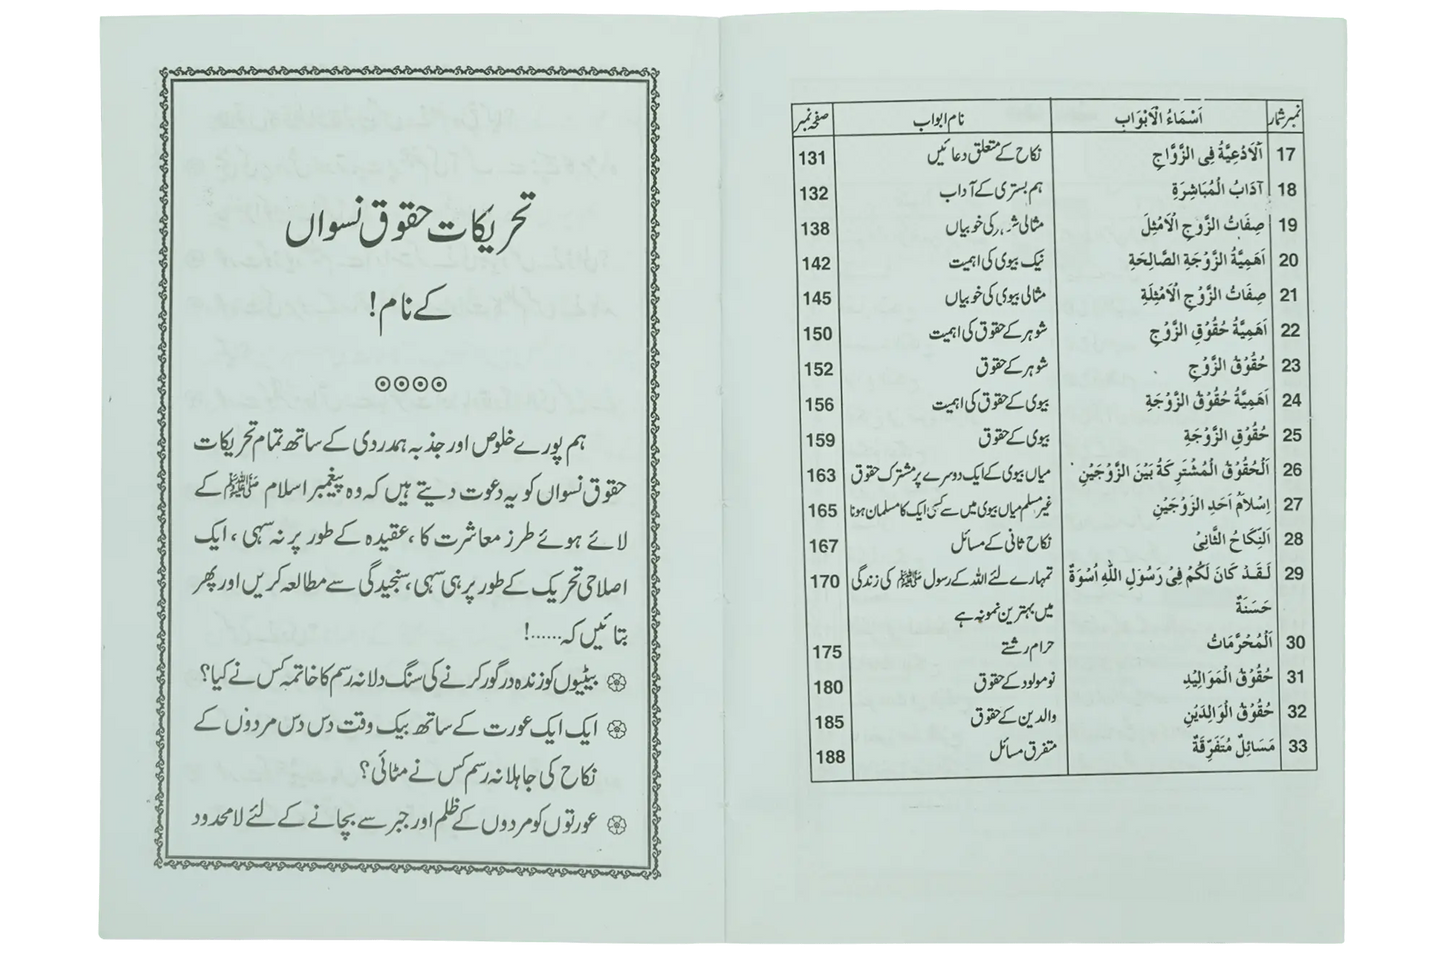 نمبر شمار اَسْمَاءُ الْاَبْوَاب نام ابواب صفحہ نمبر
17 اَلْاَدْعِيَّةُ فِى الزَّوَّاجِ نکاح کے متعلق دعائیں 131
18 آدَابُ الْمُبَاشِرَةِ ہم بستری کے آداب 132
19 صِفَاتُ الزَّوْجِ الْاَمْثِلَ مثالی شوہر کی خوبیاں 138
20 اَهَمِيَّةُ الزَّوْجَةِ الصَّالِحَةِ نیک بیوی کی اہمیت 142
21 صِفَاتُ الزَّوْجِ الْاَمْثِلَةِ مثالی بیوی کی خوبیاں 145
22 اَهَمِيَّةُ حُقُوْقِ الزَّوْجِ شوہر کے حقوق کی اہمیت 150
23 حُقُوْقُ الزَّوْجِ شوہر کے حقوق 152
24 اَهَمِيَّةُ حُقُوْقِ الزَّوْجَةِ بیوی کے حقوق کی اہمیت 156
25 حُقُوْقِ الزَّوْجَةِ بیوی کے حقوق 159
26 اَلْحُقُوْقُ الْمُشْتَرِكَةُ بَيْنَ الزَّوْجَيْنِ میاں بیوی کے ایک دوسرے پر مشترک حقوق 163
27 اِسْلَامُ اَحَدِ الزَّوْجَيْنِ غیر مسلم میاں بیوی میں سے کسی ایک کا مسلمان ہونا 165
28 اَلنِّكَاحُ الثَّانِىْ نکاح ثانی کے مسائل 167
29 لَقَدْ كَانَ لَكُمْ فِىْ رَسُوْلِ اللّٰهِ اُسْوَةٌ تمہارے لئے اللہ کے رسول ﷺ کی زندگی 170
حَسَنَةٌ میں بہترین نمونہ ہے
30 اَلْمُحَرَّمَاتُ حرام رشتے 175
31 حُقُوْقُ الْمَوَالِيْدِ نومولود کے حقوق 180
32 حُقُوْقُ الْوَالِدَيْنِ والدین کے حقوق 185
33 مَسَائِلٌ مُتَفَرِّقَةٌ متفرق مسائل 188
تحریکات حقوق نسواں
کے نام!
ہم پورے خلوص اور جذبہ ہمدردی کے ساتھ تمام تحریکات
حقوق نسواں کو یہ دعوت دیتے ہیں کہ وہ پیغمبر اسلام ﷺ کے
لائے ہوئے طرز معاشرت کا، عقیدہ کے طور پر نہ سہی، ایک
اصلاحی تحریک کے طور پر ہی سہی، سنجیدگی سے مطالعہ کریں اور پھر
بتائیں کہ......!
بیٹیوں کو زندہ درگور کرنے کی سنگ دلانہ رسم کا خاتمہ کس نے کیا؟
ایک ایک عورت کے ساتھ بیک وقت دس دس مردوں کے
نکاح کی جاہلانہ رسم کس نے مٹائی؟
عورتوں کو مردوں کے ظلم اور جبر سے بچانے کے لئے لامحدود